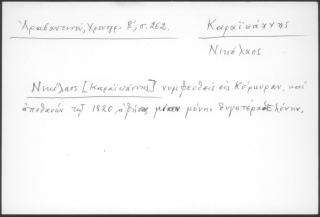 Ἀραβαντινοῦ, Χρονογρ. Β', σ. 262.
Καραϊωάννης
Νικόλαος
Νικόλαος [Καραϊωάννης] νυμφευθεὶς εἰς Κέρκυραν, καὶ
ἀποθανὼν τῷ 1820, ἀφῆκε μόνην θυγατέρα Ἑλένην.